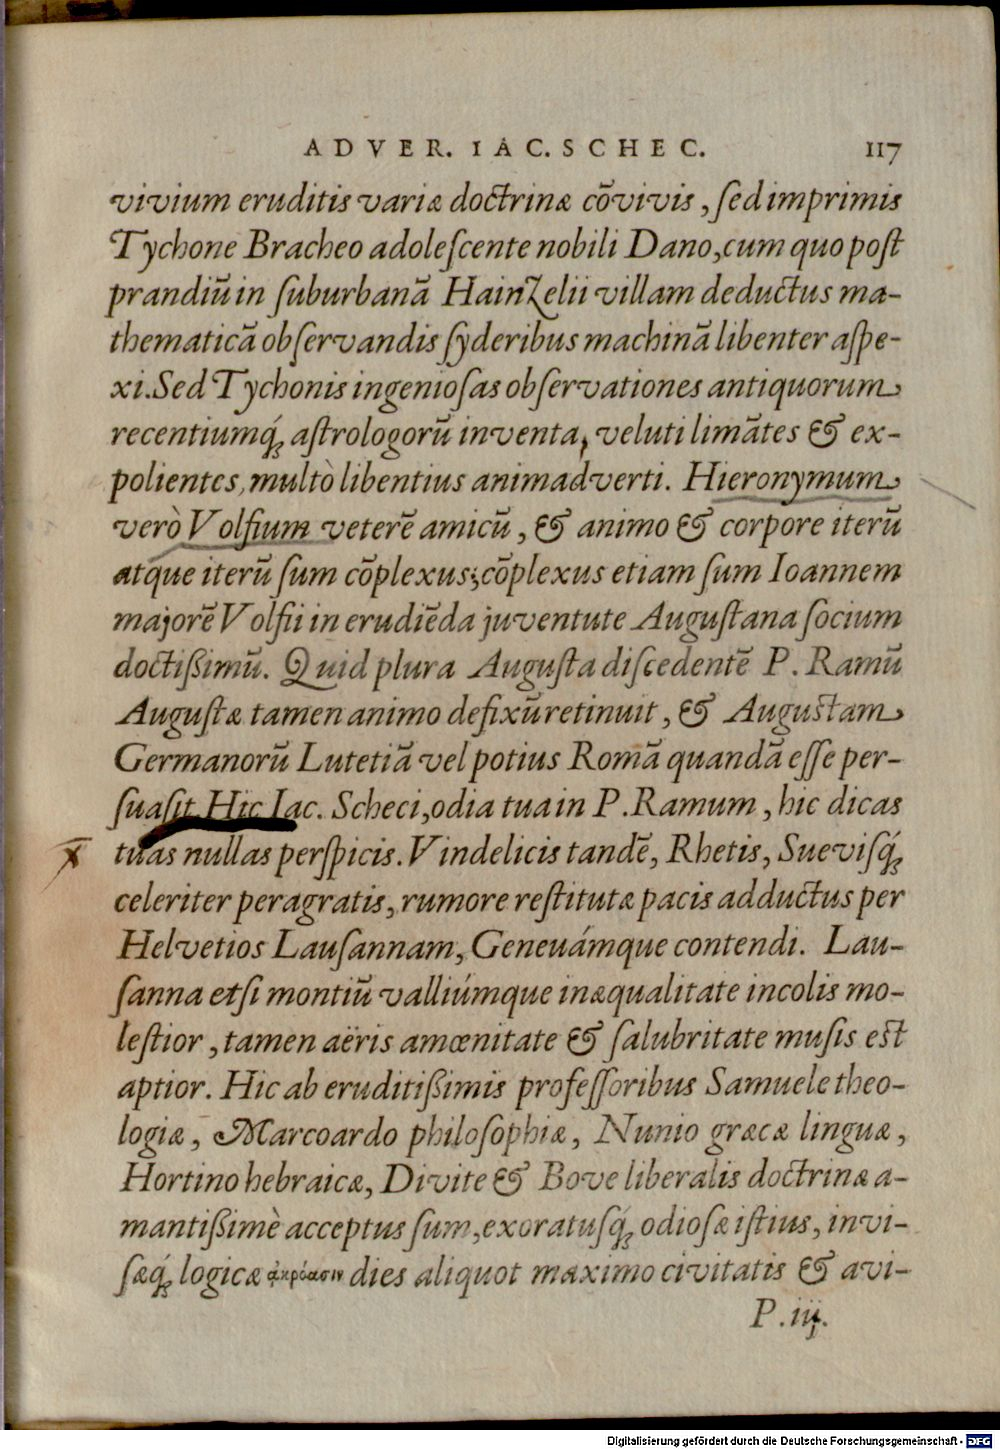 ADVER. IAC. SCHEC. 117
vivium eruditis variæ doctrinæ cõvivis, ſed imprimis
Tychone Bracheo adoleſcente nobili Dano, cum quo poſt
prandiũ in ſuburbanã Hainzelii villam deductus ma-
thematicã obſervandis ſyderibus machinã libenter aſpe-
xi. Sed Tychonis ingenioſas obſervationes antiquorum
recentiumq́; aſtrologorũ inventa, veluti limãtes & ex-
polientes, multò libentius animadverti. Hieronymum
verò Volfium veterẽ amicũ, & animo & corpore iterũ
atque iterũ ſum cõplexus; cõplexus etiam ſum Ioannem
majorẽ Volfii in erudiẽda juventute Auguſtana ſocium
doctißimũ. Quid plura Auguſta diſcedentẽ P. Ramũ
Auguſtæ tamen animo defixũ retinuit, & Auguſtam
Germanorũ Lutetiã vel potius Romã quandã eſſe per-
ſuaſit. Hic Iac. Scheci, odia tua in P. Ramum, hic dicas
tuas nullas perſpicis. Vindelicis tandẽ, Rhetis, Sueviſq́;
celeriter peragratis, rumore reſtitutæ pacis adductus per
Helvetios Lauſannam, Geneuámque contendi. Lau-
ſanna etſi montiũ valliúmque inæqualitate incolis mo-
leſtior, tamen aëris amœnitate & ſalubritate muſis eſt
aptior. Hic ab eruditißimis profeſſoribus Samuele theo-
logiæ, Marcoardo philoſophiæ, Nunio græcæ linguæ,
Hortino hebraicæ, Divite & Bove liberalis doctrinæ a-
mantißimè acceptus ſum, exoratuſq́; odioſæ iſtius, invi-
ſæq́; logicæ ἀκρόασιν dies aliquot maximo civitatis & avi-
P. iij.
Digitalisierung gefördert durch die Deutsche Forschungsgemeinschaft - DFG